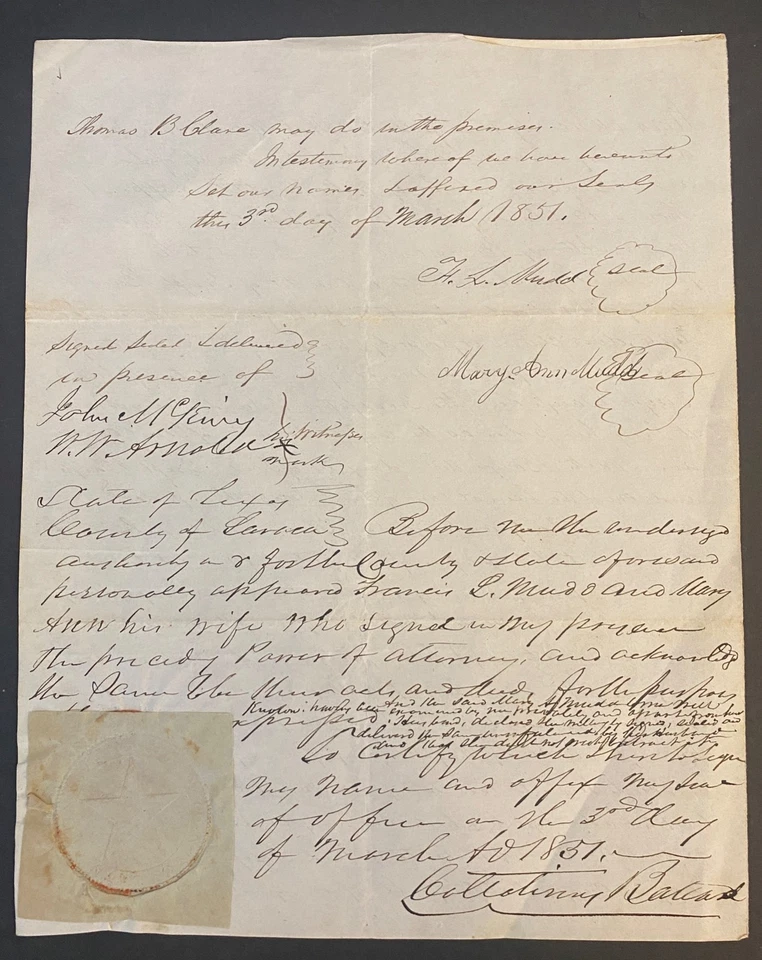 Thomas B Clare may do in the premises.
In testimony whereof we have hereunto
set our names & affixed our Seals
this 3rd day of March 1851.
F. L. Mudd seal
Mary Ann Mudd seal
Signed Sealed & delivered
in presence of
John McKiny
W. W. Arnold his Witnesses
X
mark
State of Texas
County of Lavaca Before me the undersigd
authority in & for the County & State aforesaid
personally appeared Francis L. Mudd and Mary
Ann his wife who signed in my presence
the preceding Power of attorney, and acknowledg
the Same to be their acts and deed for the purposes
expressed. And the said Mary Ann Mudd
having been examined by me privately and apart from her
Husband, declared she willingly signed, sealed and
delivered the Same
and that she does not wish to retract it
To Certify which I hereto sign
My name and affix my Seal
of office on the 3rd day
of March AD 1851.
Ballard